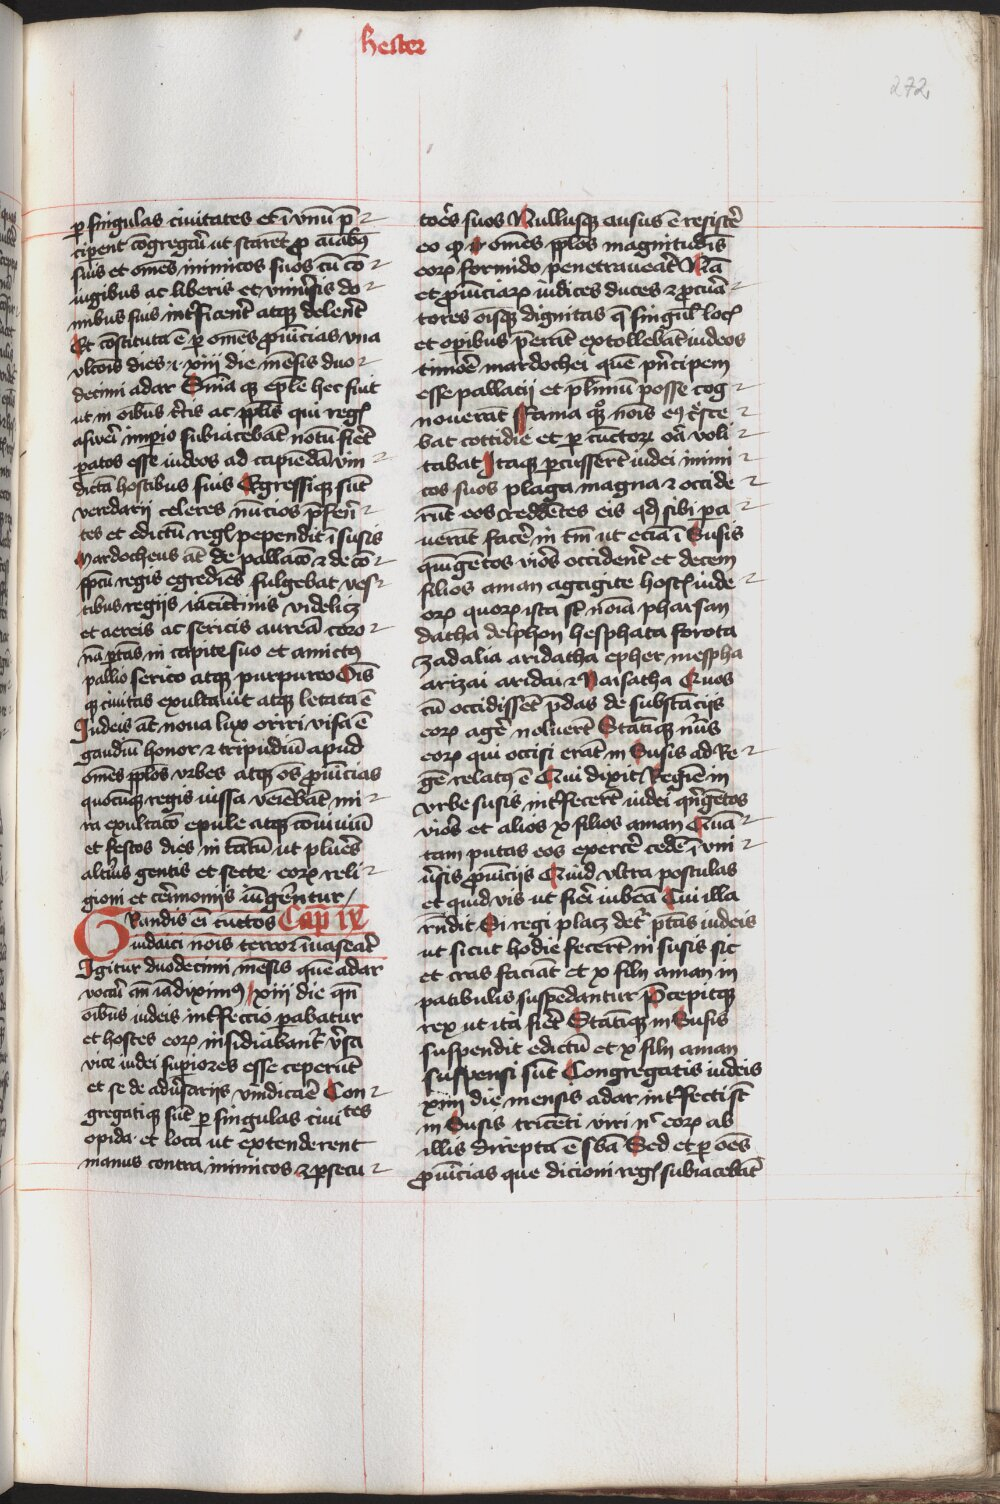 hester
272
p singulas ciuitates et ī vnū p
ciperēt cōgregari ut starēt p aīabus
suis et oēs inimicos suos cū cō
iugibus ac liberis et vniūsis do
mibus suis intficerēt atqꝫ delerēt
Et cōstituta ē p omēs puīcias vna
vltōis dies ·i· xiii die mēsis duo
decimi adar Sūma qꝫ eple hec fuit
ut in oībus tr̄is ac pplis qui regꝭ
asweri impio subiacebāt notū fieret
patos esse iudeos ad capiēdā vin
dictā hostibus suis Egressiqꝫ sūt
veredarii celeres nūcios pferē
tes et edictū regꝭ pependit ī susis
Mardocheus āt de pallacō ⁊ de cō
spcū regis egrediēs fulgebat ves
tibus regiis iacīctinis videlicꝫ
et aereis ac sericis aureā coro
nā portās in capite suo et amictꝰ
pallio serico atqꝫ purpureo Oīs
qꝫ ciuitas exultauit atqꝫ letata ē
Iudeis āt noua lux oriri visa ē
gaudiū honor ⁊ tripudiū apud
omēs pplos vrbes atqꝫ oēs puīcias
quocūqꝫ regis iussa veiebāt mi
ra exultacō epule atqꝫ cōuiuiū
et festos dies in tātū ut plures
altius gentis et secte eoꝝ reli
gioni et cerimoniis iūgerentur
Grandis ei cūctos Cap IX
iudaici nois terror īuaserat
Igitur duodecimi mēsis quē adar
vocari an iā diximꝰ xiii die qn̄
oībus iudeis intfeccio pabatur
et hostes eoꝝ insidiabant vsa
vice iudei supiores esse ceperūt
et se de adūsariis vindicare Con
gregatiqꝫ sūt p singulas ciuitates
opida et loca ut extenderent
manus contra inimicos ⁊ psecu
tores suos Nullusqꝫ ausus ē resistere
eo qꝫ omēs pplos magnitudis
eoꝝ formido penetraueāt Nā
et puīciaꝝ iudices duces ⁊ pcura
tores oīsqꝫ dignitas q singulꝭ locꝭ
et opibus perāt extollebāt iudeos
timore mardochei quē pncipem
esse pallacii et plimū posse cog
nouerāt Fama qꝫ nois eꝰ cresce
bat cottidie et p cūctoꝝ ora voli
tabat Itaqꝫ pcusserūt iudei inimi
cos suos plaga magna ⁊ occide
rūt eos reddētes eis qd sibi pa
uerāt facere in tm̄ ut eciā ī Susis
quīgētos viros occiderēt et decem
filios aman agagite hostꝭ iude
oꝝ quoꝝ ista st noīa pharsan
datha delphon hesphata forota
zadalia aridatha epher mespha
arizai aridai ⁊ Naisatha Quos
cū occidissēt pdas de substāciis
eoꝝ agere noluerūt Statīqꝫ nūs
eoꝝ qui occisi erāt in Susis ad Re
gē relatꝰ ē Qui dixit Regine in
vrbe susis intfecerūt iudei qngētos
viros et alios x filios aman Quā
tam putas eos exercere cedē ī vni
ūsis puīciis Quid vltra postulas
et quid vis ut fieri iubeā Cui illa
rn̄dit Si regi placꝫ det ptās iudeis
ut sicut hodie fecerūt in susis sic
et cras faciāt et x filii aman in
patibulis suspēdantur Pcepitqꝫ
rex ut ita fieret Statīqꝫ in Susis
suspendit edictū et x filii aman
suspensi sūt Congregatis iudeis
xiiii die mensis adar intfecti st
in Susis tricenti viri n̄ eoꝝ ab
illis direpta ē sba Sed et p oēs
puīcias que dicioni regꝭ subiacebāt